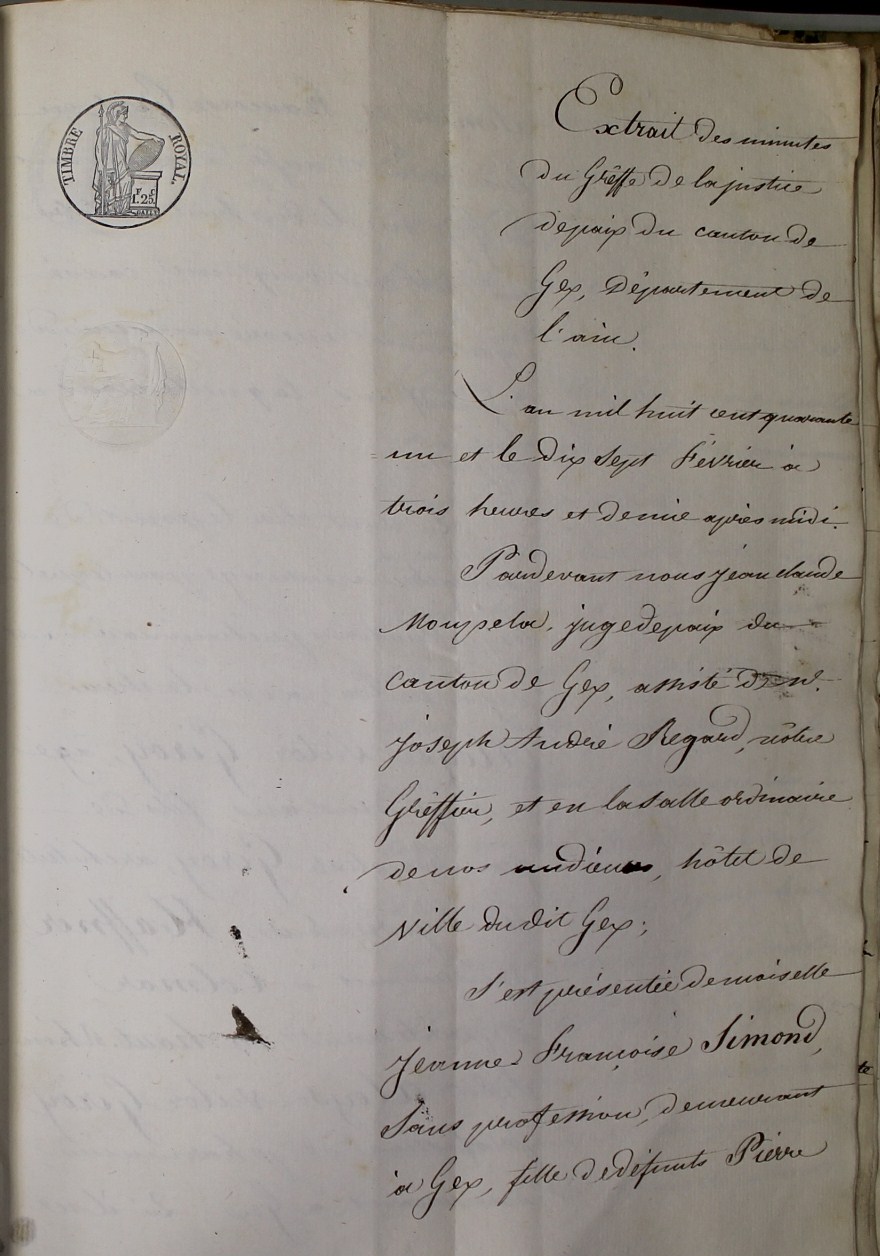 TIMBRE ROYAL.
1F. 25c.
Extrait des minutes
du Grêffe de la justice
de paix du canton de
Gex, Département de
l'ain.
L'an mil huit cent quarante
un et le dix sept Février à
trois heures et demie après midi.
Pardevant nous jean claude
juge de paix du
canton de Gex, assisté de
joseph André Regard, nôtre
Grêffier, et en la salle ordinaire
de nos audiences, hôtel de
ville du dit Gex;
S'est présentée demoiselle
jeanne Françoise Simond,
sans profession, demeurant
à Gex, fille de défunts Pierre